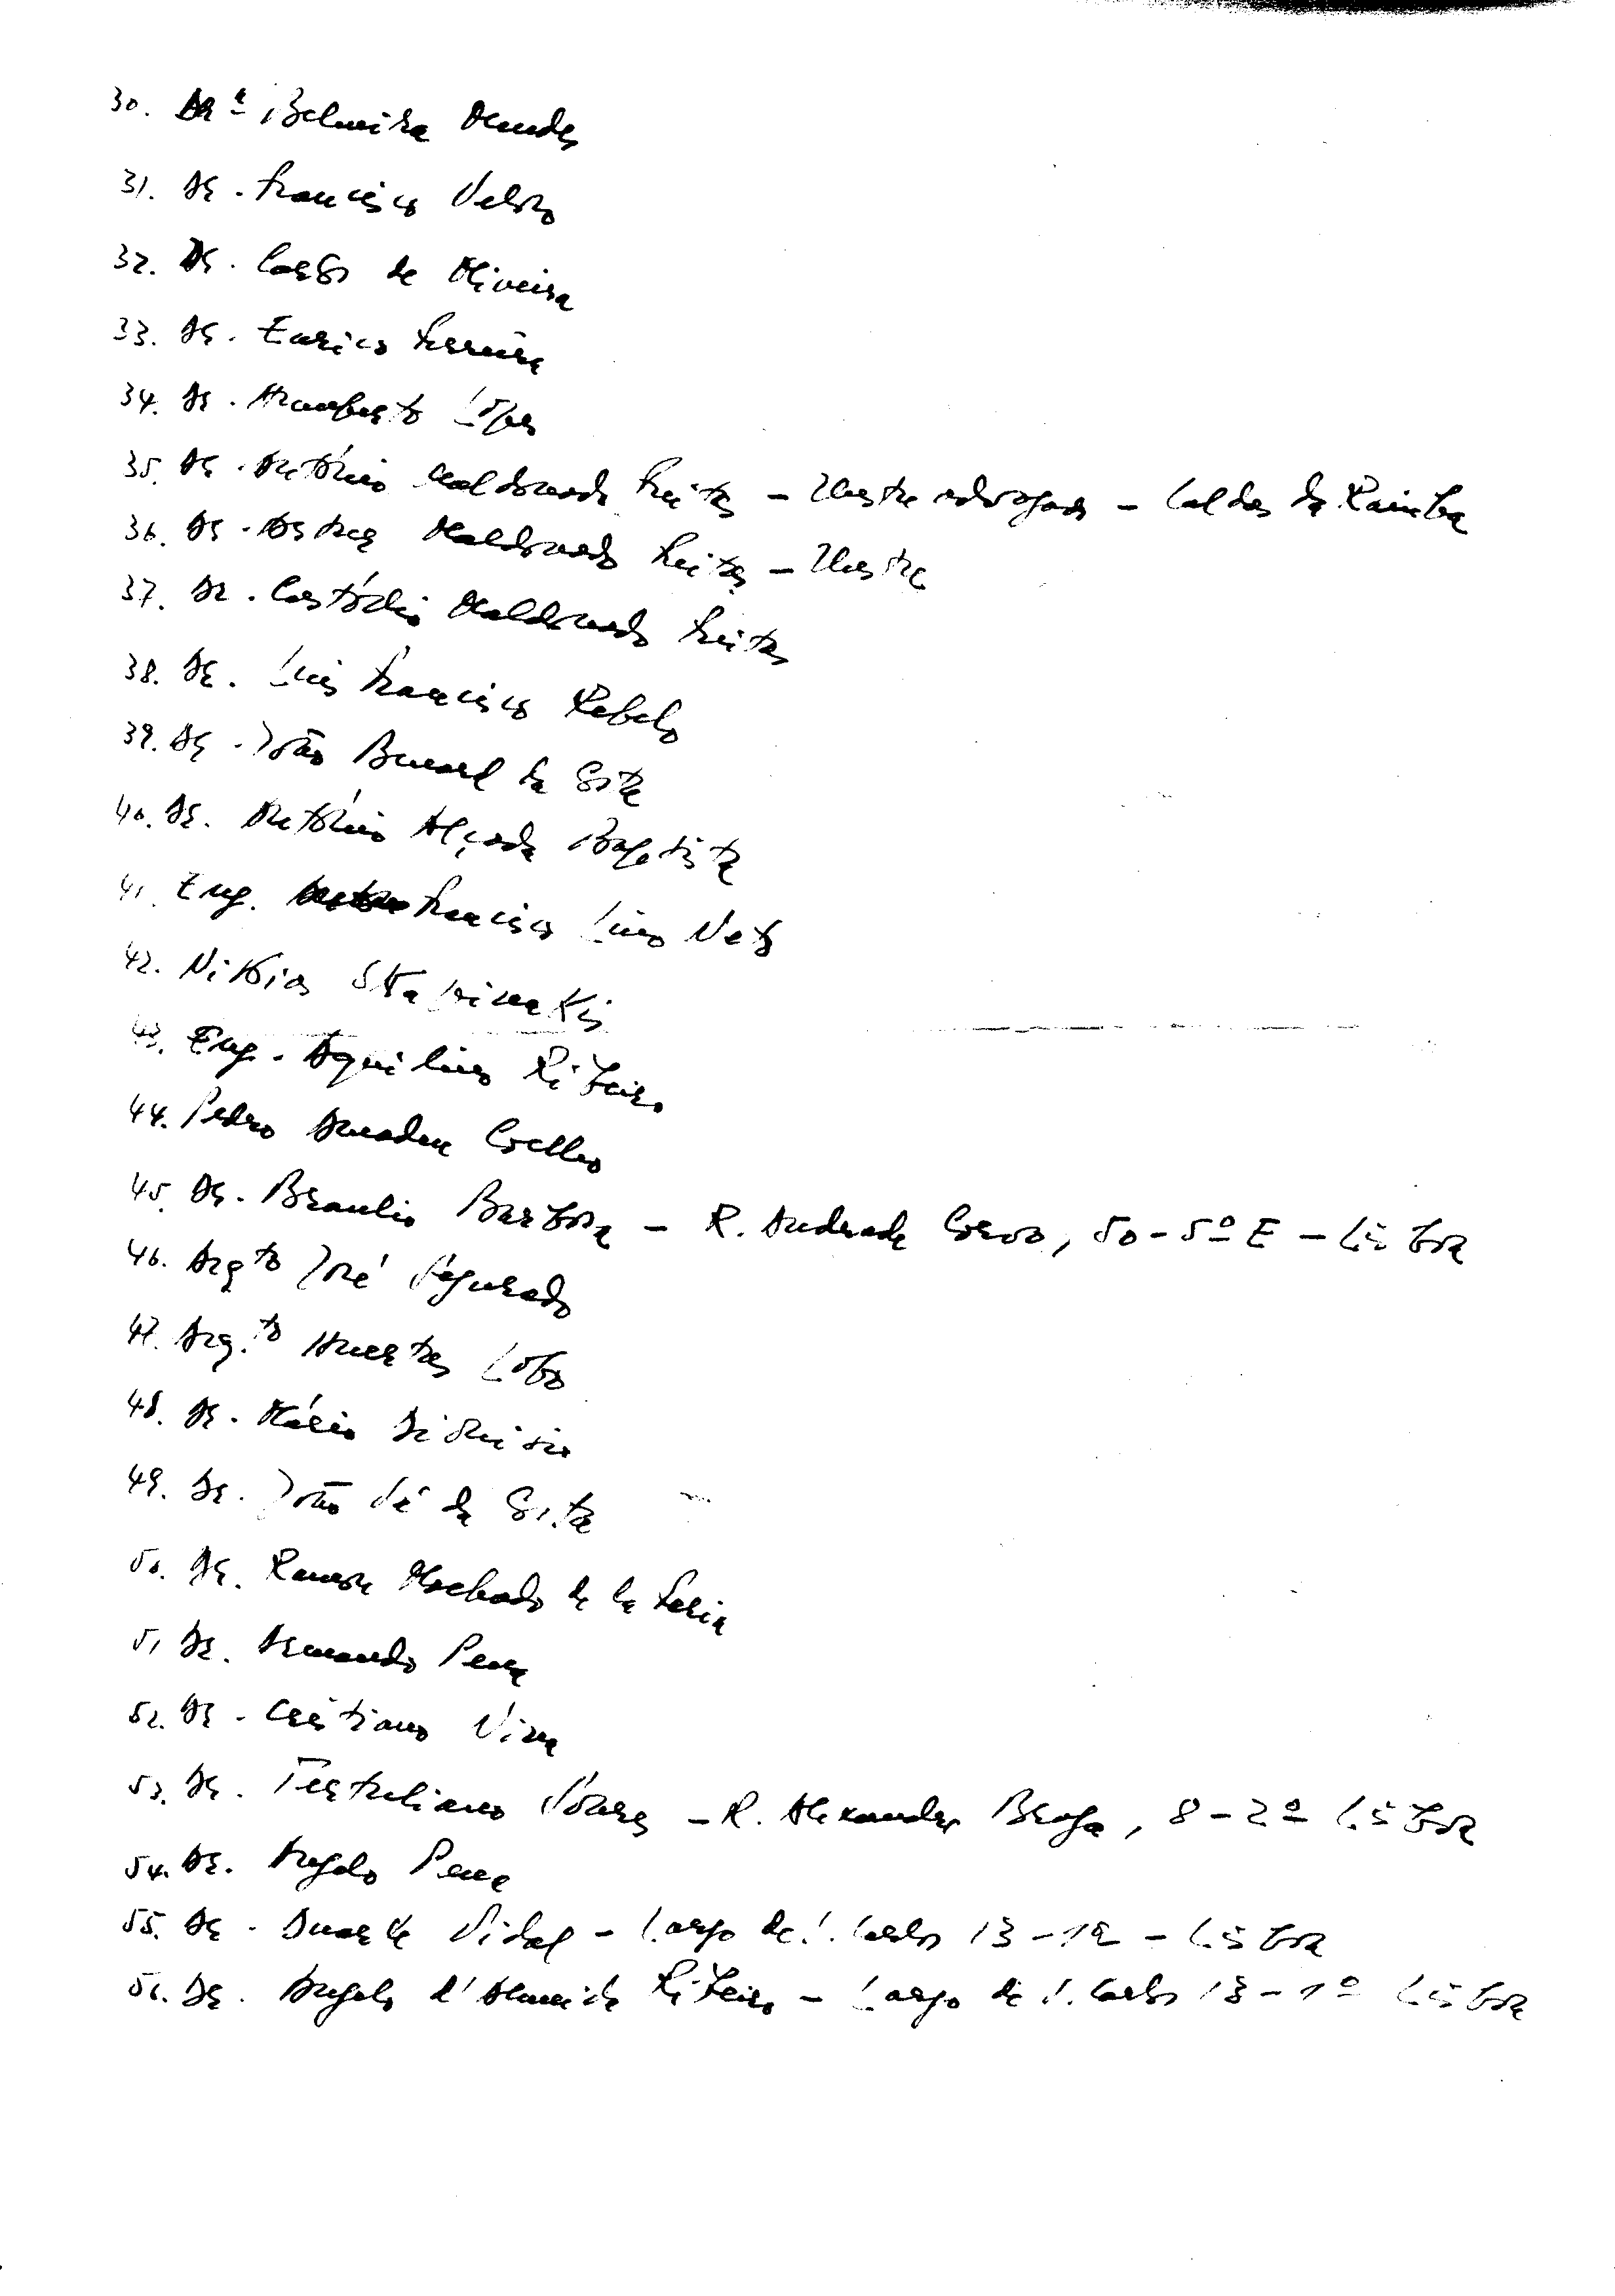 30. Drª Belmira Mendes
31. Dr. Francisco Veloso
32. Dr. Carlos de Oliveira
33. Dr. Eurico Ferreira
34. Dr. Humberto Lopes
35. Dr. António Maldonado Freitas – Ilustre advogado – Caldas da Rainha
36. Dr. Maldonado Freitas – Ilustre
37. Dr. Custódio Maldonado Freitas
38. Dr. Luis Francisco Rebelo
39. Dr. João Benard da Costa
40. Dr. António Alçada Baptista
41. Eng. Francisco Lino Neto
42. Nikias Skapinakis
43. Eng. Aquilino Ribeiro
44. Pedro Amadeu Coelho
45. Dr. Braulio Barbosa – R. Andrade Corvo, 50-5º E – Lisboa
46. Arqto José Segurado
47. Arq.to Huertas Lobo
48. Dr. Mário Dionisio
49. Dr. João Sá da Costa
50. Dr. Ramon Machado de la Feria
51 Dr. Armando Pena
52. Dr. Cristiano Viana
53. Dr. Tertuliano Soares – R. Alexandre Braga, 8-2º Lisboa
54. Dr. Angelo Pena
55. Dr. Duarte Vidal – Largo de S. Carlos 13-1º – Lisboa
56. Dr. Angelo d'Almeida Ribeiro – Largo de S. Carlos 13-1º Lisboa